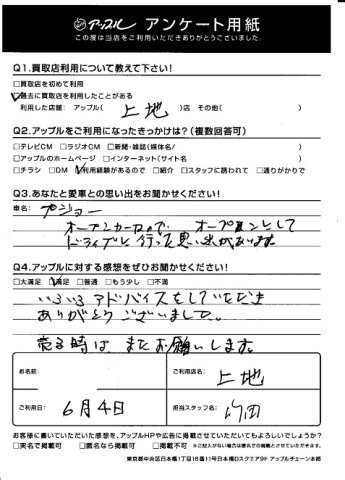 アップル アンケート用紙
この度は当店をご利用いただきありがとうございました。
Q1.買取店利用について教えて下さい!
□買取店を初めて利用
☑過去に買取店を利用したことがある
利用した店舗: アップル( 上地 )店 その他( )
Q2.アップルをご利用になったきっかけは?(複数回答可)
□テレビCM □ラジオCM □新聞・雑誌(媒体名/ )
□アップルのホームページ □インターネット(サイト名 )
□チラシ □DM ☑利用経験があるので □紹介 □スタッフに誘われて □通りがかりで
Q3.あなたと愛車との思い出をお聞かせください!
車名: プジョー
オープンカーなので、オープンにして
ドライブに行った思い出があります
Q4.アップルに対する感想をぜひお聞かせください!
□大満足 ☑満足 □普通 □もう少し □不満
いろいろアドバイスをしていただき
ありがとうございました。
売る時は、またお願いします。
お名前:
ご利用店名:
上地
ご利用日: 6月4日
担当スタッフ名:
お客様に書いていただいた感想を、アップルHPや広告に掲載させていただいてもよろしいでしょうか?
□実名で掲載可 □匿名なら掲載可 □掲載不可 ※ご記入がない場合は匿名での掲載とさせていただきます。
東京都中央区日本橋1丁目16番11号日本橋Dスクエア9F アップルチェーン本部